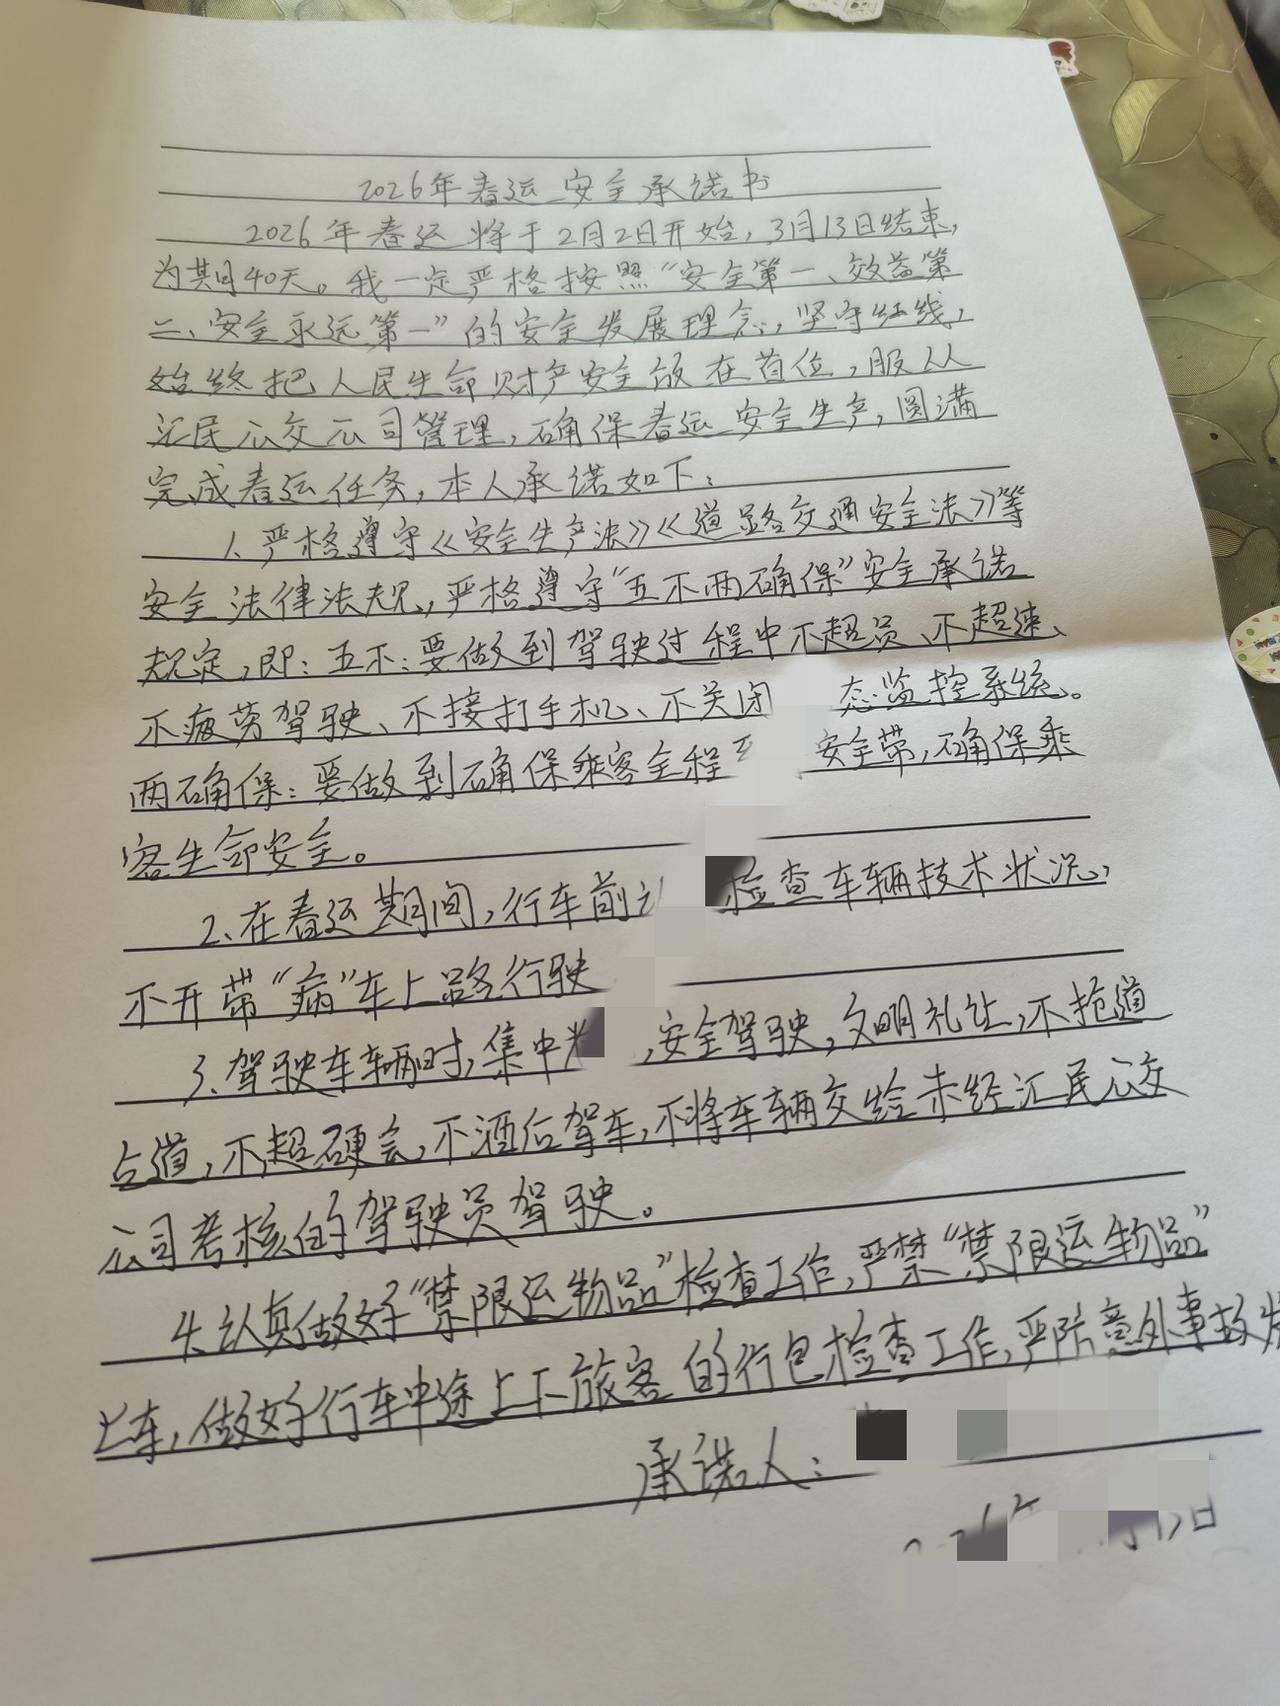 2026年春运安全承诺书
2026年春运将于2月2日开始,3月13日结束,
为其40天。我一定严格按照“安全第一、效益第
二、安全永远第一”的安全发展理念,坚守红线,
始终把人民生命财产安全放在首位,服从
汇民公交公司管理,确保春运安全生产,圆满
完成春运任务,本人承诺如下:
1、严格遵守《安全生产法》《道路交通安全法》等
安全法律法规,严格遵守“五不两确保”安全承诺
规定,即:五不:要做到驾驶过程中不超员、不超速、
不疲劳驾驶、不接打手机、不关闭 态监控系统。
两确保:要做到确保乘客全程 安全带,确保乘
客生命安全。
2、在春运期间,行车前 检查车辆技术状况,
不开带“病”车上路行驶
3、驾驶车辆时,集中 ,安全驾驶,文明礼让,不抢道
占道,不超硬会,不酒后驾车,不将车辆交给未经汇民公交
公司考核的驾驶员驾驶。
4、认真做好“禁限运物品”检查工作,严禁“禁限运物品”
上车,做好行车中途上下旅客的行包检查工作,严防意外事故
承诺人:
日